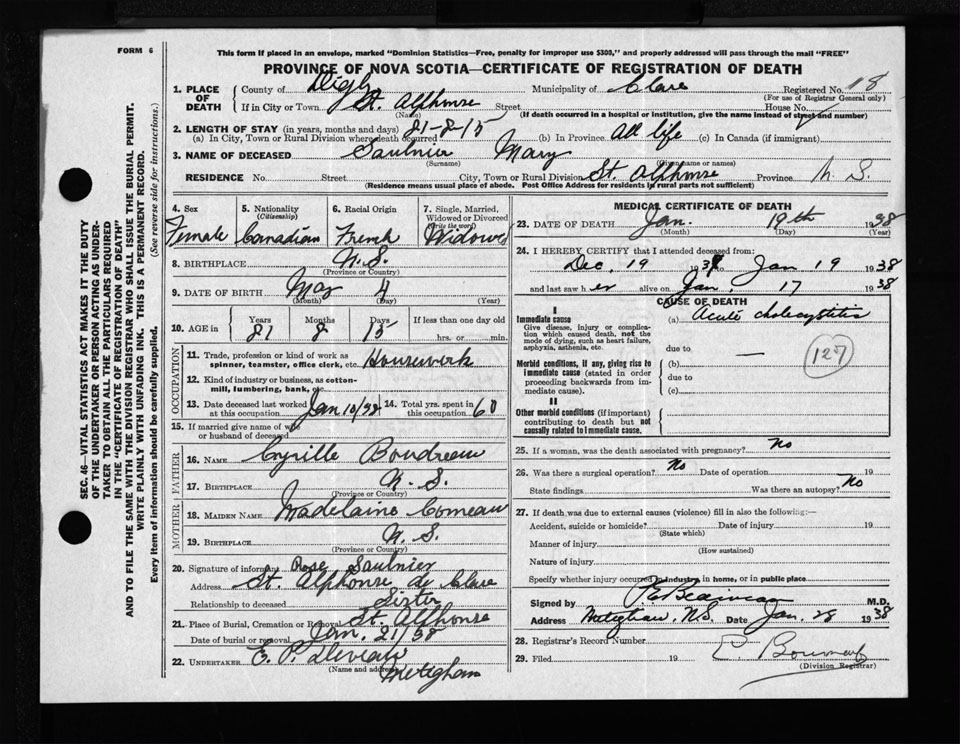 FORM 6
This form if placed in an envelope, marked "Dominion Statistics—Free, penalty for improper use $300," and properly addressed will pass through the mail "FREE"
PROVINCE OF NOVA SCOTIA—CERTIFICATE OF REGISTRATION OF DEATH
SEC. 46—VITAL STATISTICS ACT MAKES IT THE DUTY
OF THE UNDERTAKER OR PERSON ACTING AS UNDER-
TAKER TO OBTAIN ALL THE PARTICULARS REQUIRED
IN THE "CERTIFICATE OF REGISTRATION OF DEATH"
AND TO FILE THE SAME WITH THE DIVISION REGISTRAR WHO SHALL ISSUE THE BURIAL PERMIT.
WRITE PLAINLY WITH UNFADING INK. THIS IS A PERMANENT RECORD.
Every item of information should be carefully supplied. (See reverse side for instructions.)
1. PLACE OF DEATH County of Digby Municipality of Clare Registered No. 18
(For use of Registrar General only)
If in City or Town St. Alphonse Street House No.
(Name) (If death occurred in a hospital or institution, give the name instead of street and number)
2. LENGTH OF STAY (in years, months and days) 81-8-15
(a) In City, Town or Rural Division where death occurred (b) In Province All life (c) In Canada (if immigrant)
3. NAME OF DECEASED Saulnier Mary
(Surname) (Given name or names)
RESIDENCE No. Street City, Town or Rural Division St. Alphonse Province N. S.
(Residence means usual place of abode. Post Office Address for residents in rural parts not sufficient)
4. Sex 5. Nationality (Citizenship) 6. Racial Origin 7. Single, Married, Widowed or Divorced (write the word)
Female Canadian French Widowed
8. BIRTHPLACE N. S.
(Province or Country)
9. DATE OF BIRTH May 4
(Month) (Day) (Year)
10. AGE in Years Months Days If less than one day old
81 8 15 hrs. or min.
OCCUPATION
11. Trade, profession or kind of work as spinner, teamster, office clerk, etc. Housework
12. Kind of industry or business, as cotton-mill, lumbering, bank, etc.
13. Date deceased last worked at this occupation Jan 10/38 14. Total yrs. spent in this occupation 60
15. If married give name of wife or husband of deceased
FATHER
16. NAME Cyrille Boudreau
17. BIRTHPLACE N. S.
(Province or Country)
MOTHER
18. MAIDEN NAME Madelaine Comeau
19. BIRTHPLACE N. S.
(Province or Country)
20. Signature of informant Rose Saulnier
Address St. Alphonse de Clare
Relationship to deceased Sister
21. Place of Burial, Cremation or Removal St. Alphonse
Date of burial or removal Jan. 21/38
22. UNDERTAKER E. P.
(Name and address) Meteghan
MEDICAL CERTIFICATE OF DEATH
23. DATE OF DEATH Jan. 19th 1938
(Month) (Day) (Year)
24. I HEREBY CERTIFY that I attended deceased from:
Dec. 19 to Jan 19 1938
and last saw her alive on Jan. 17 1938
CAUSE OF DEATH
I
Immediate cause (a) Acute cholecystitis
Give disease, injury or complication which caused death, not the mode of dying, such as heart failure, asphyxia, asthenia, etc.
due to — 127
Morbid conditions, if any, giving rise to immediate cause (stated in order proceeding backwards from immediate cause).
(b)
due to
(c)
II
Other morbid conditions (if important) contributing to death but not causally related to immediate cause.
25. If a woman, was the death associated with pregnancy? No
26. Was there a surgical operation? No Date of operation 19
State findings Was there an autopsy? No
27. If death was due to external causes (violence) fill in also the following:—
Accident, suicide or homicide? Date of injury 19
(State which)
Manner of injury
(How sustained)
Nature of injury
Specify whether injury occurred in industry, in home, or in public place
Signed by M.D.
Address Meteghan, N.S. Date Jan. 28 1938
28. Registrar's Record Number
29. Filed 19
(Division Registrar)